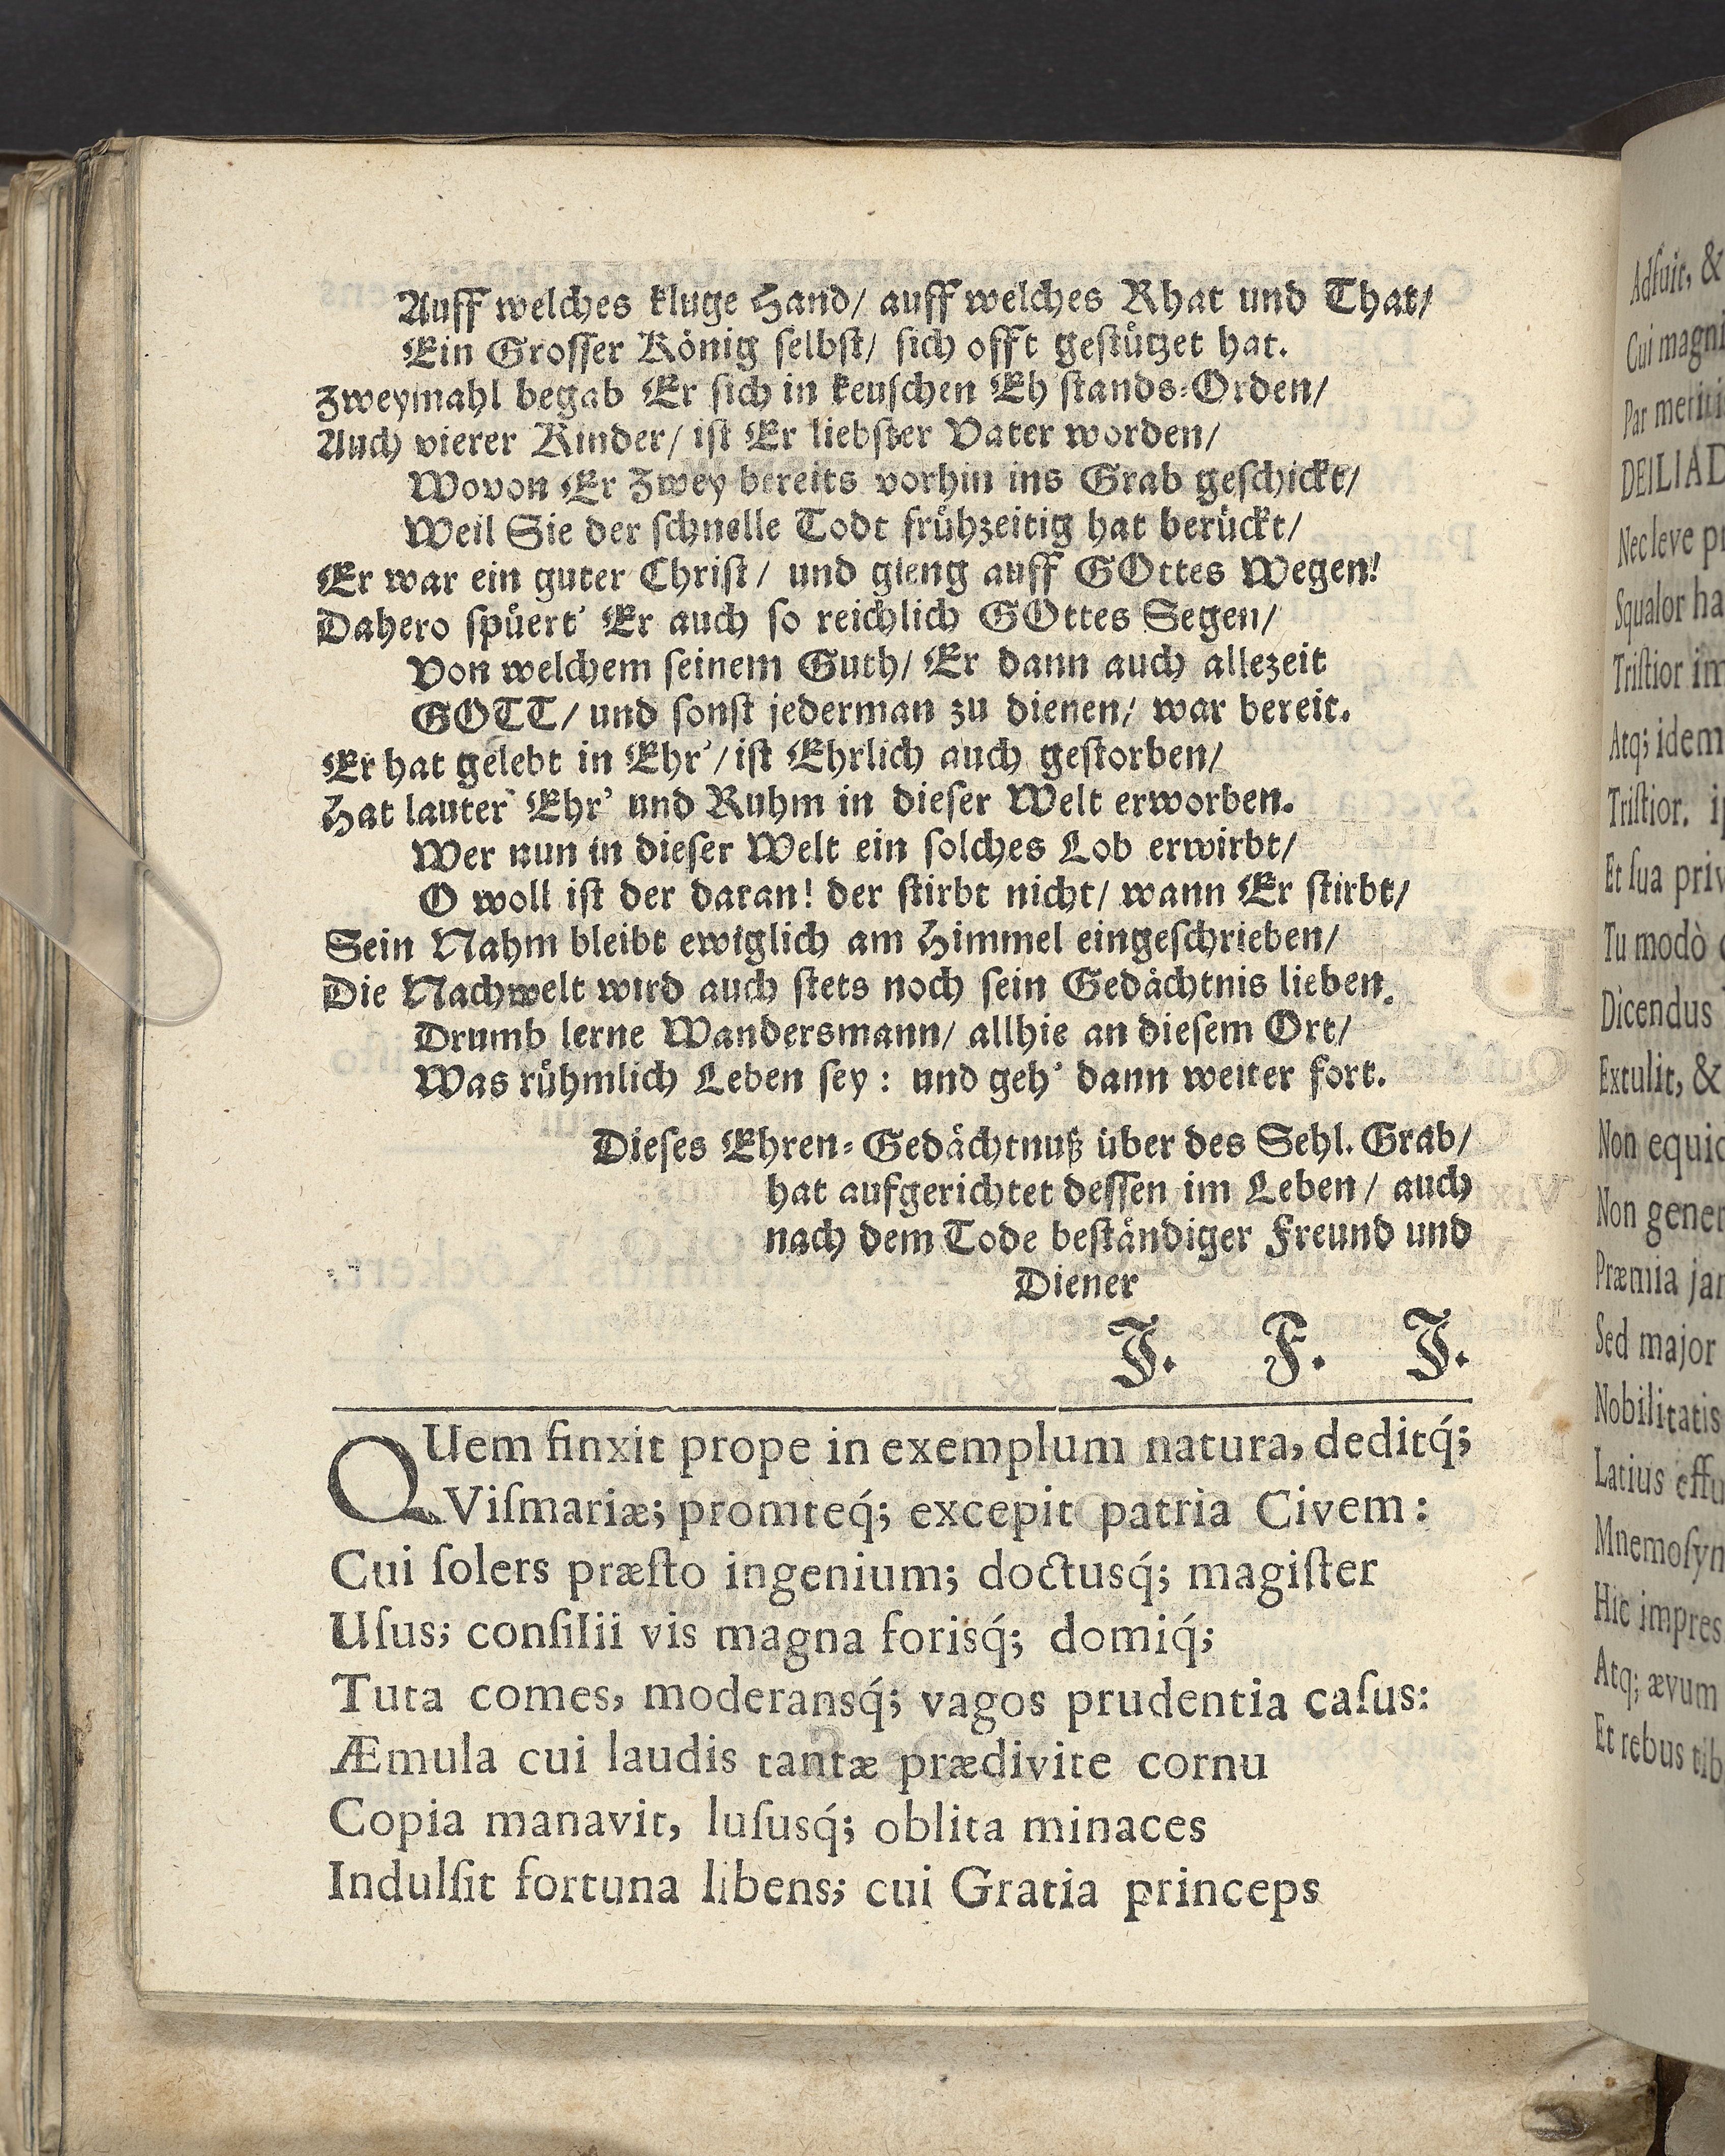 Auff welches kluge Hand/ auff welches Rhat und That/
Ein Grosser König selbſt/ ſich offt geſtuͤtzet hat.
Zweymahl begab Er ſich in keuſchen Eh ſtands-Orden/
Auch vierer Kinder/ iſt Er liebſter Vater worden/
Wovon Er Zwey bereits vorhin ins Grab geſchickt/
Weil Sie der ſchnelle Todt fruͤhzeitig hat beruͤckt/
Er war ein guter Chriſt/ und gieng auff GOttes Wegen!
Dahero ſpuͤert' Er auch ſo reichlich GOttes Segen/
Von welchem ſeinem Guth/ Er dann auch allezeit
GOTT/ und ſonſt jederman zu dienen/ war bereit.
Er hat gelebt in Ehr'/ iſt Ehrlich auch geſtorben/
Hat lauter Ehr' und Ruhm in dieſer Welt erworben.
Wer nun in dieſer Welt ein ſolches Lob erwirbt/
O woll iſt der daran! der ſtirbt nicht/ wann Er ſtirbt/
Sein Nahm bleibt ewiglich am Himmel eingeſchrieben/
Die Nachwelt wird auch ſtets noch ſein Gedaͤchtnis lieben.
Drumb lerne Wandersmann/ allhie an dieſem Ort/
Was ruͤhmlich Leben ſey: und geh' dann weiter fort.
Dieſes Ehren-Gedaͤchtnuß uͤber des Sehl. Grab/
hat aufgerichtet deſſen im Leben/ auch
nach dem Tode beſtaͤndiger Freund und
Diener
J. F. J.
QUem finxit prope in exemplum natura, deditq́;
Viſmariæ; promteq́; excepit patria Civem:
Cui ſolers præſto ingenium; doctusq́; magiſter
Uſus; conſilii vis magna forisq́; domiq́;
Tuta comes, moderansq́; vagos prudentia caſus:
Æmula cui laudis tantæ prædivite cornu
Copia manavit, luſusq́; oblita minaces
Indulſit fortuna libens; cui Gratia princeps
Adfuit, &
Cui magni
Par meriti
DEILIAD
Nec leve
Squalor
Triſtior
Atq; idem
Triſtior.
Et ſua
Tu modò
Dicendus
Extulit, &
Non
Non
Præmia
Sed major
Nobilitatis
Latius
Hic
Atq; ævum
Et rebus